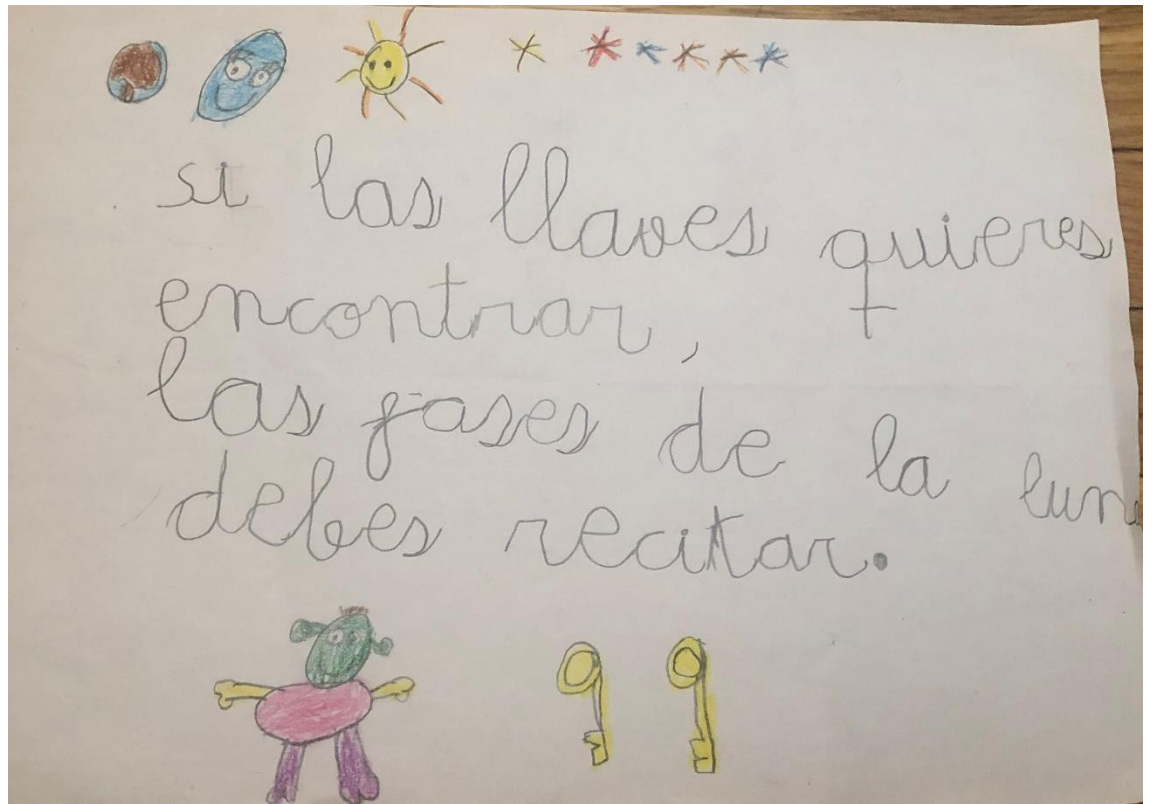 si las llaves quieres
encontrar,
las fases de la luna
debes recitar.